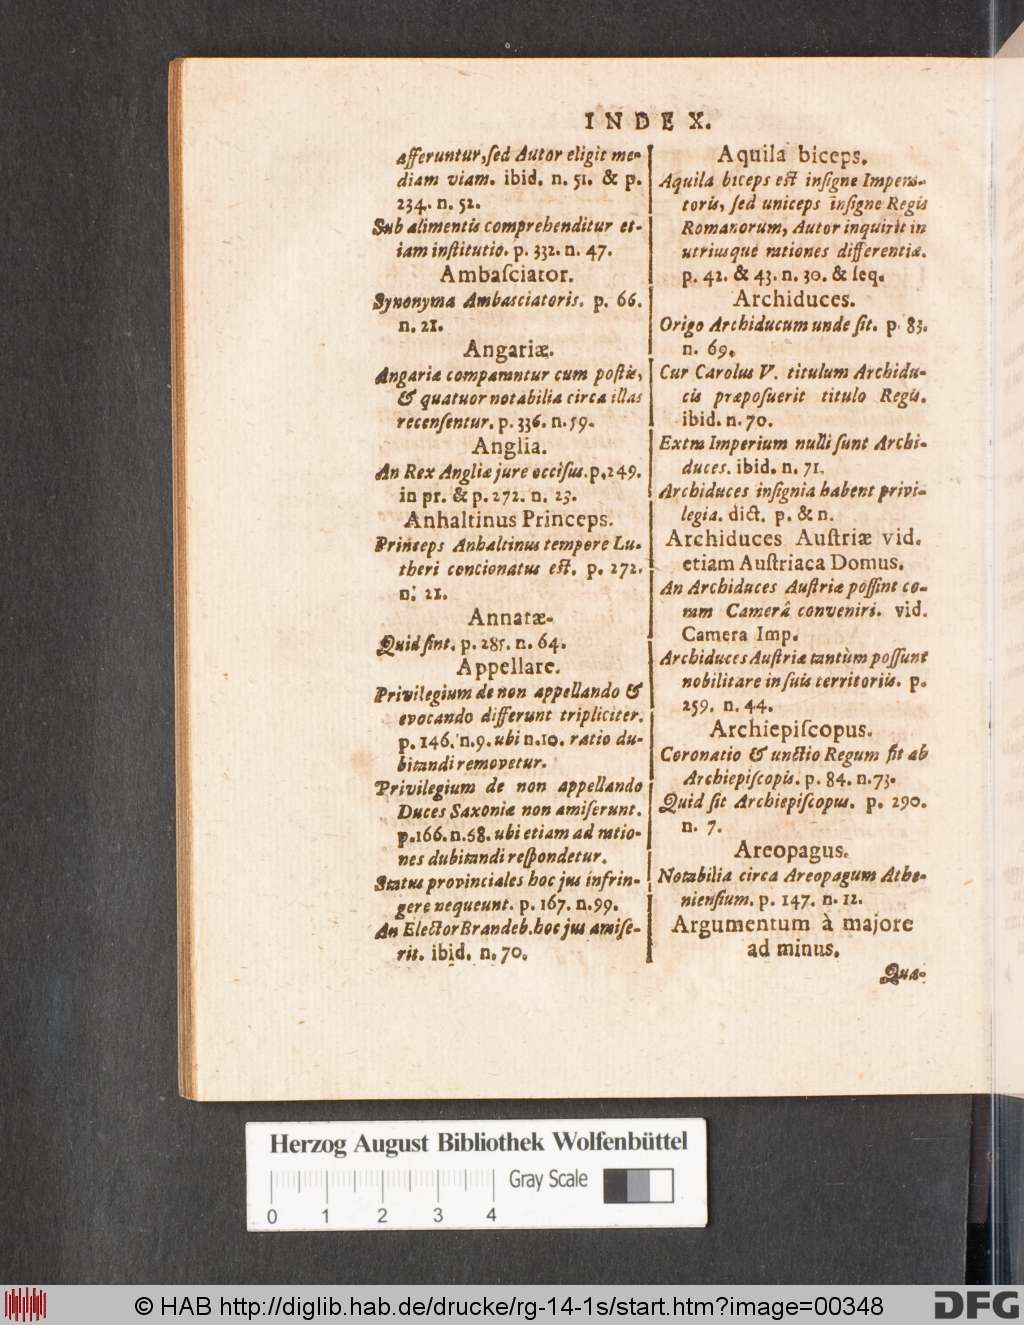 INDEX.
afferuntur, ſed Autor eligit me-
diam viam. ibid. n. 51. & p.
234. n. 52.
Sub alimentis comprehenditur et-
iam inſtitutio. p. 332. n. 47.
Ambaſciator.
Synonyma Ambasciatoris. p. 66.
n. 21.
Angariæ.
Angariæ comparantur cum poſtis,
& quatuor notabilia circa illas
recenſentur. p. 336. n. 59.
Anglia.
An Rex Angliæ jure occiſus. p. 249.
in pr. & p. 272. n. 23.
Anhaltinus Princeps.
Princeps Anhaltinus tempore Lu-
theri concionatus eſt. p. 272.
n. 21.
Annatæ.
Quid ſint. p. 285. n. 64.
Appellare.
Privilegium de non appellando &
evocando differunt tripliciter.
p. 146. n. 9. ubi n. 10. ratio du-
bitandi removetur.
Privilegium de non appellando
Duces Saxoniæ non amiſerunt.
p. 166. n. 68. ubi etiam ad ratio-
nes dubitandi reſpondetur.
Status provinciales hoc jus infrin-
gere nequeunt. p. 167. n. 99.
An Elector Brandeb. hoc jus amiſe-
rit. ibid. n. 70.
Aquila biceps.
Aquila biceps eſt inſigne Impera-
toris, ſed uniceps inſigne Regis
Romanorum, Autor inquirit in
utriusque rationes differentiæ.
p. 42. & 43. n. 30. & ſeq.
Archiduces.
Origo Archiducum unde ſit. p. 83.
n. 69.
Cur Carolus V. titulum Archidu-
cis præpoſuerit titulo Regis.
ibid. n. 70.
Extra Imperium nulli ſunt Archi-
duces. ibid. n. 71.
Archiduces inſignia habent privi-
legia. dict. p. & n.
Archiduces Auſtriæ vid.
etiam Auſtriaca Domus.
An Archiduces Auſtriæ poſſint co-
ram Camerâ conveniri. vid.
Camera Imp.
Archiduces Auſtriæ tantùm poſſunt
nobilitare in ſuis territoriis. p.
259. n. 44.
Archiepiſcopus.
Coronatio & unctio Regum fit ab
Archiepiſcopis. p. 84. n. 73.
Quid ſit Archiepiſcopus. p. 290.
n. 7.
Areopagus.
Notabilia circa Areopagum Athe-
nienſium. p. 147. n. 12.
Argumentum à majore
ad minus.
Qua-
Herzog August Bibliothek Wolfenbüttel
Gray Scale
0 1 2 3 4
© HAB http://diglib.hab.de/drucke/rg-14-1s/start.htm?image=00348
DFG